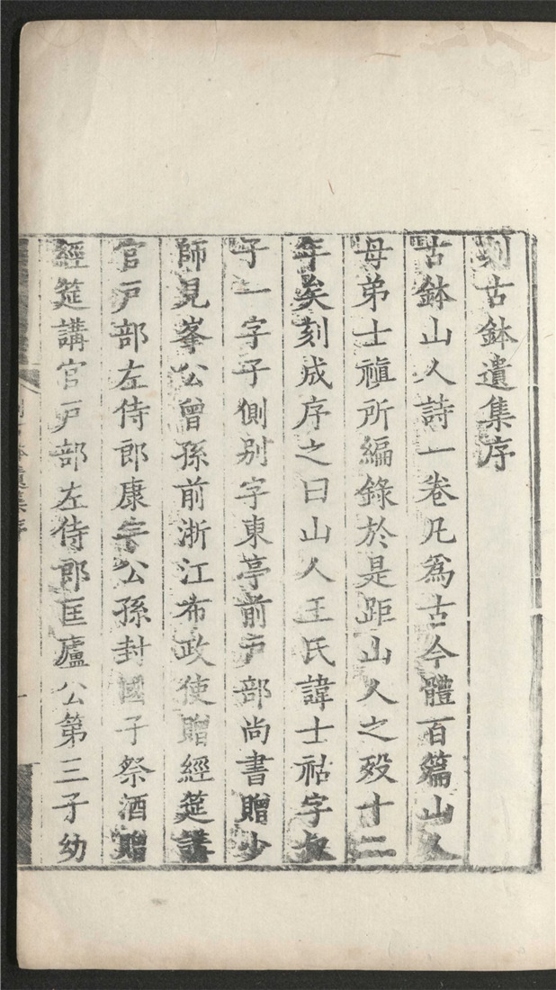 刻古鉢遺集序
古鉢山人詩一卷凡爲古今體百篇山人
母弟士禛所編錄於是距山人之殁十二
年矣刻成序之曰山人王氏諱士祜字叔
子一字子側别字東亭前戶部尚書贈少
師見峯公曾孫前浙江布政使贈經筵講
官戶部左侍郎康宇公孫封國子祭酒贈
經筵講官戶部左侍郎匡廬公第三子幼